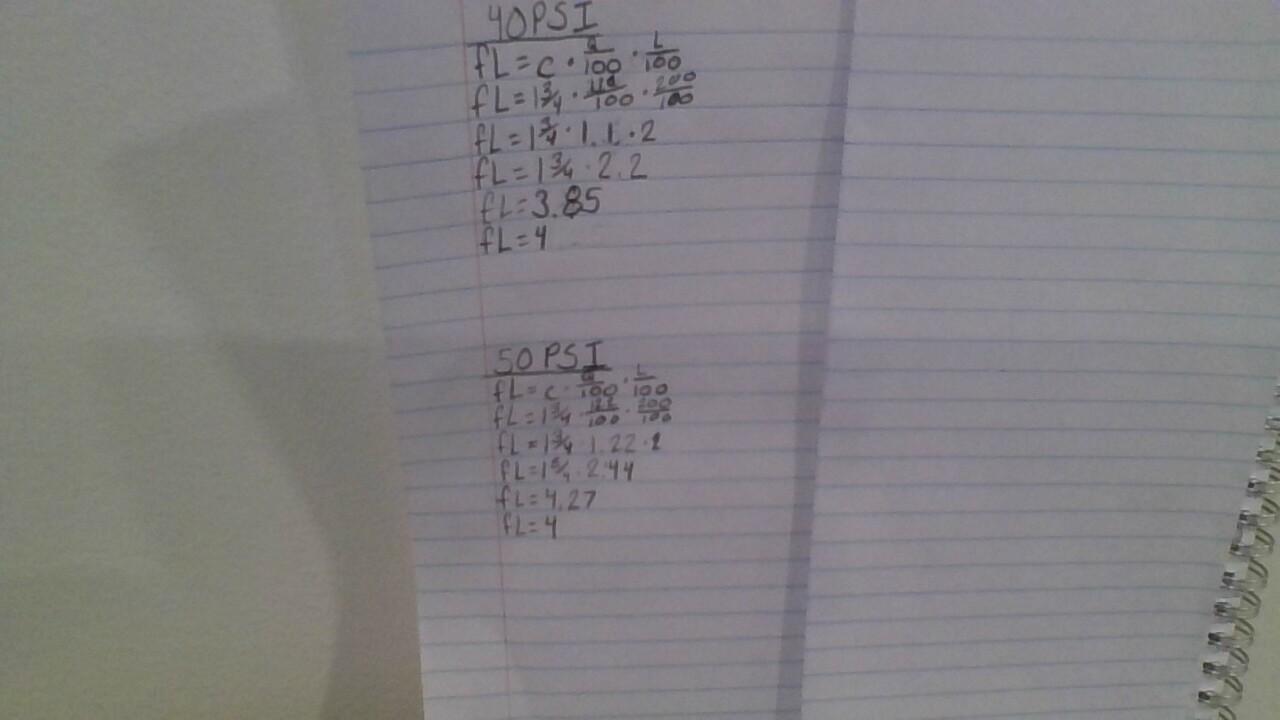 40PSI
fL = C · Q/100 · L/100
fL = 1 3/4 · 110/100 · 200/100
fL = 1 3/4 · 1.1 · 2
fL = 1 3/4 · 2.2
fL = 3.85
fL = 4
50 PSI
fL = C · Q/100 · L/100
fL = 1 3/4 · 122/100 · 200/100
fL = 1 3/4 · 1.22 · 2
fL = 1 3/4 · 2.44
fL = 4.27
fL = 4